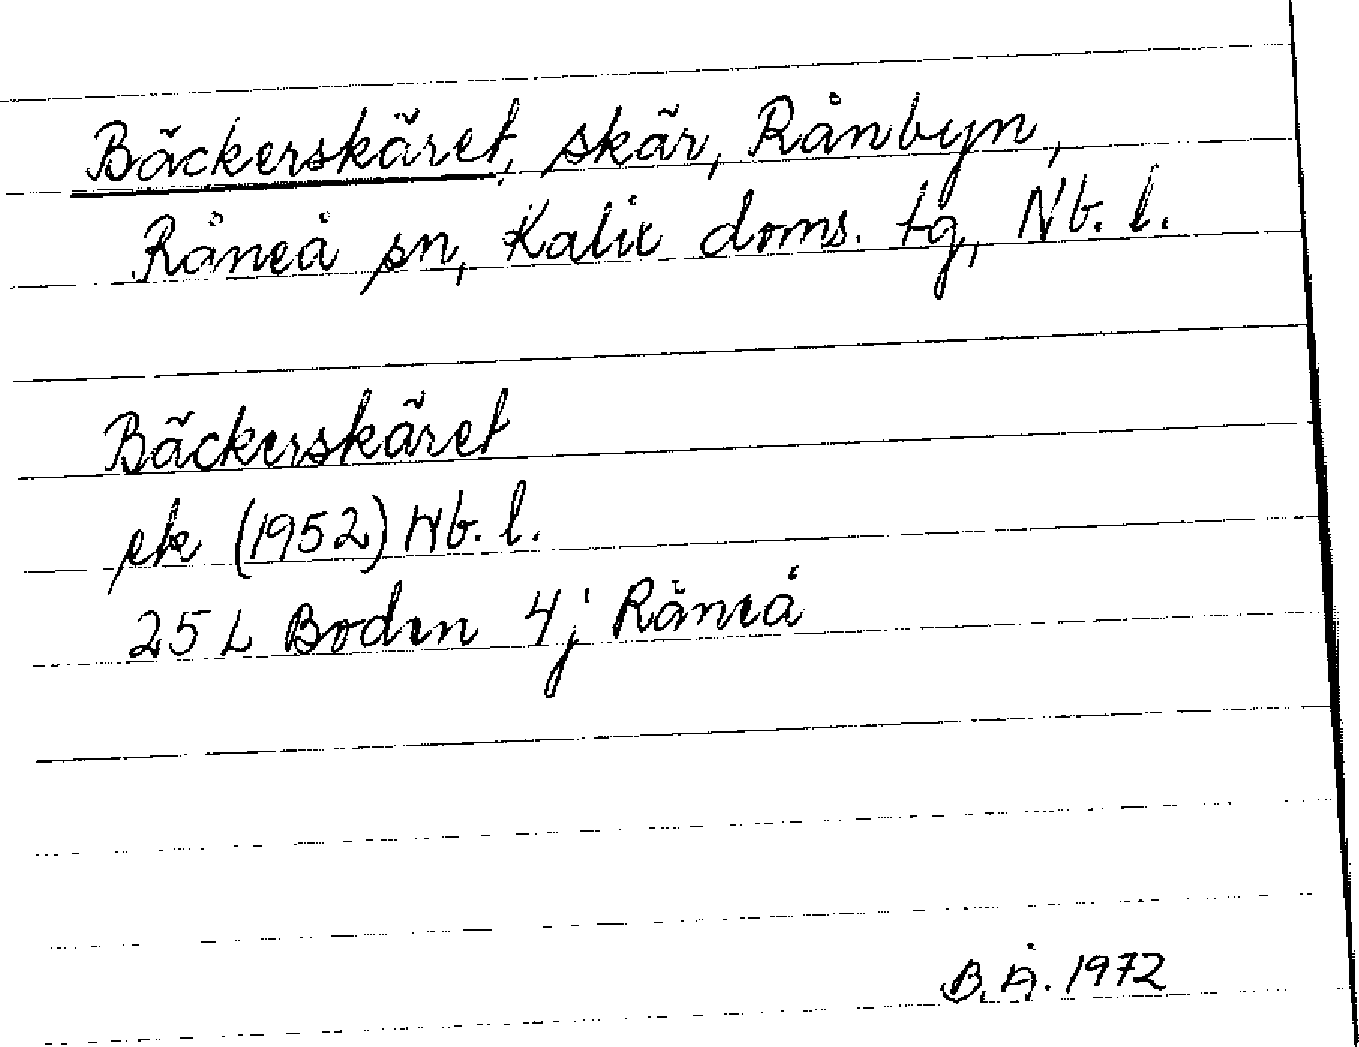 Bäckerskäret, skär, Rånbyn,
Råneå sn, Kalix doms. tg, Nb. l.
Bäckerskäret
ek (1952) Nb. l.
25 L Boden 4j Råneå
B.Å. 1972